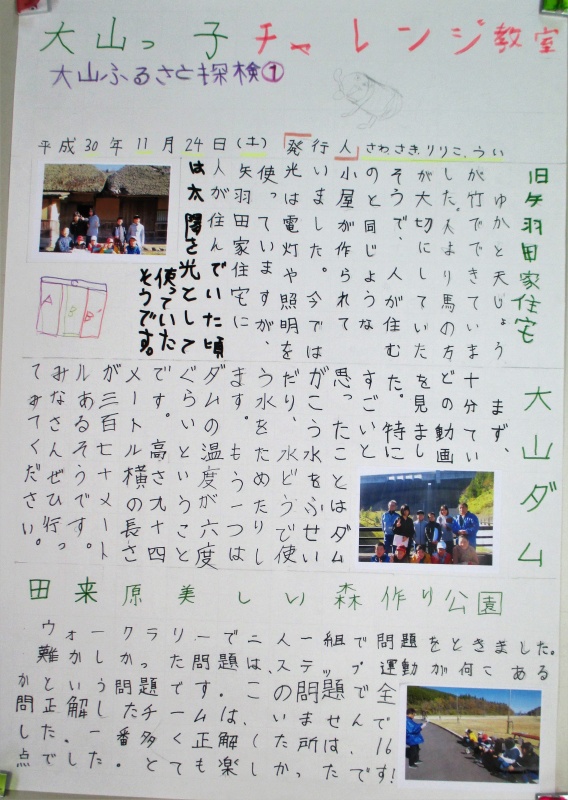 大山っ子チャレンジ教室
大山ふるさと探検①
平成30年11月24日(土)「発行人」さわさき、りりこ、うい
旧矢羽田家住宅
ゆかと天じょう
が竹でできていま
した。人より馬の方
が大切にしていた
そうで、人が住む
のと同じような
小屋が作られて
いました。今では
光は電灯や照明を
使っていますが、
矢羽田家住宅に
人が住んでいた頃
は太陽を光として
使っていた
そうです。
A
B
大山ダム
まず、
十分てい
どの動画
を見まし
た。特に
すごいと
思ったことはダム
がこう水をふせい
だり、水どうで使
う水をためたりし
ます。もう一つは
ダムの温度が六度
ぐらいということ
です。高さ九十四
メートル横の長さ
が三百七十メート
ルあるそうです。
みなさんぜひ行っ
てみてください。
田来原美しい森作り公園
ウォークラリーで二人一組で問題をときました。
難かしかった問題は、ステップ運動が何こある
かという問題です。この問題で全
問正解したチームは、いませんで
した。一番多く正解した所は、16
点でした。とても楽しかったです!